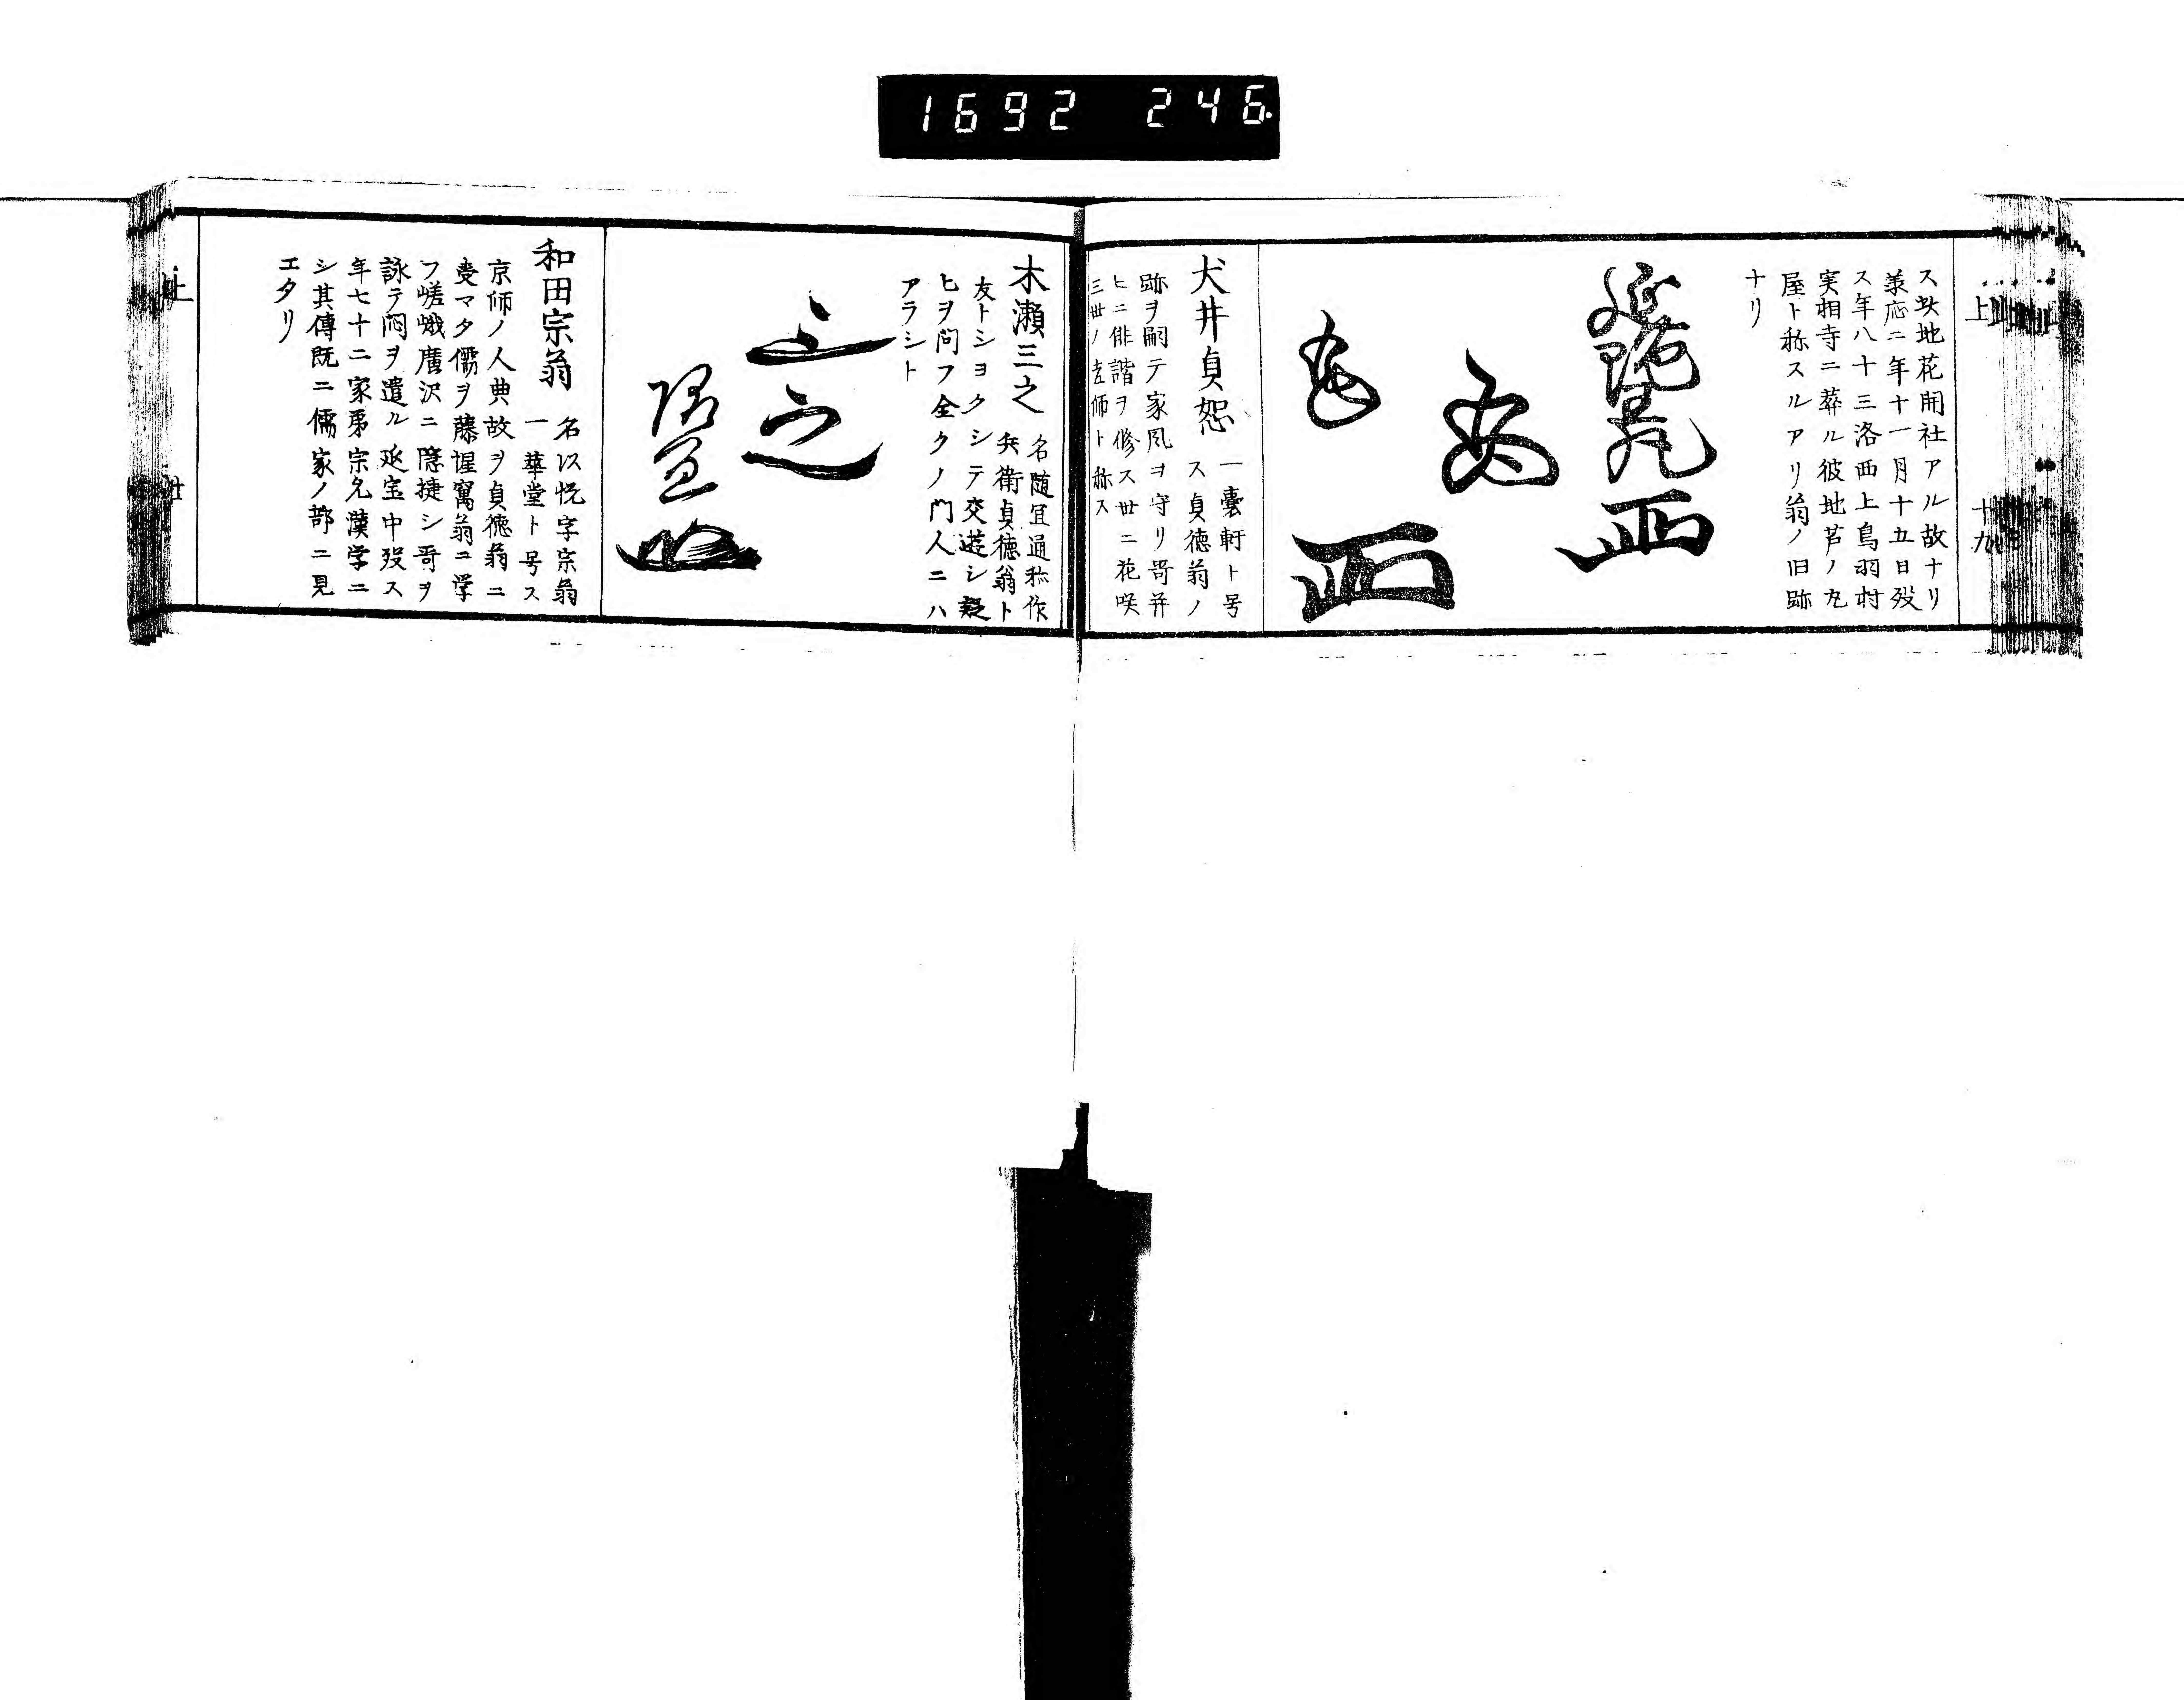 1692 246.
上
十九
ス此地花開社アル故ナリ
羕応二年十一月十五日歿
ス年八十三洛西上鳥羽村
実相寺ニ葬ル彼地芦ノ丸
屋ト称スルアリ翁ノ旧跡
ナリ
犬井貞恕
一嚢軒ト号
ス貞徳翁ノ
跡ヲ嗣テ家風ヲ守リ哥并
ヒニ俳諧ヲ修ス世ニ花咲
三世ノ宗師ト称ス
木瀬三之
名随宜通称作
兵衛貞徳翁ト
友トシヨクシテ交遊シ疑
ヒヲ問フ全クノ門人ニハ
アラシト
三之
随宜
和田宗翁
名以悦字宗翁
一華堂ト号ス
京師ノ人典故ヲ貞徳翁ニ
受マタ儒ヲ藤惺窩翁ニ学
フ嵯峨廣沢ニ隠捿シ哥ヲ
詠テ悶ヲ遣ル延宝中歿ス
年七十二家弟宗允漢学ニ
シ其傳既ニ儒家ノ部ニ見
エタリ
上